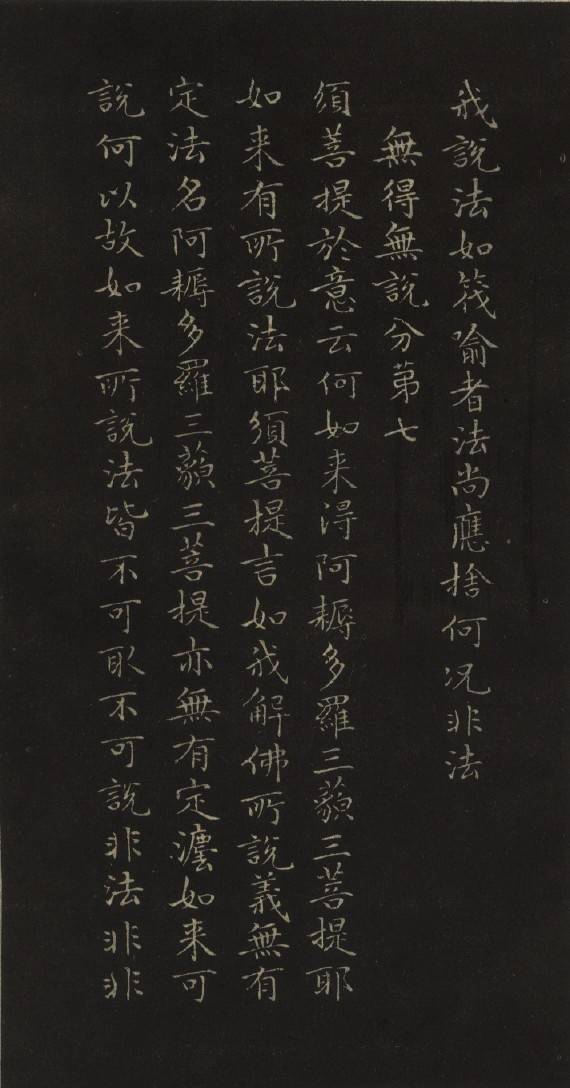 我說法如筏喻者法尚應捨何况非法
無得無說分第七
須菩提於意云何如来得阿耨多羅三藐三菩提耶
如来有所說法耶須菩提言如我解佛所說義無有
定法名阿耨多羅三藐三菩提亦無有定灋如来可
說何以故如来所說法皆不可取不可說非法非非